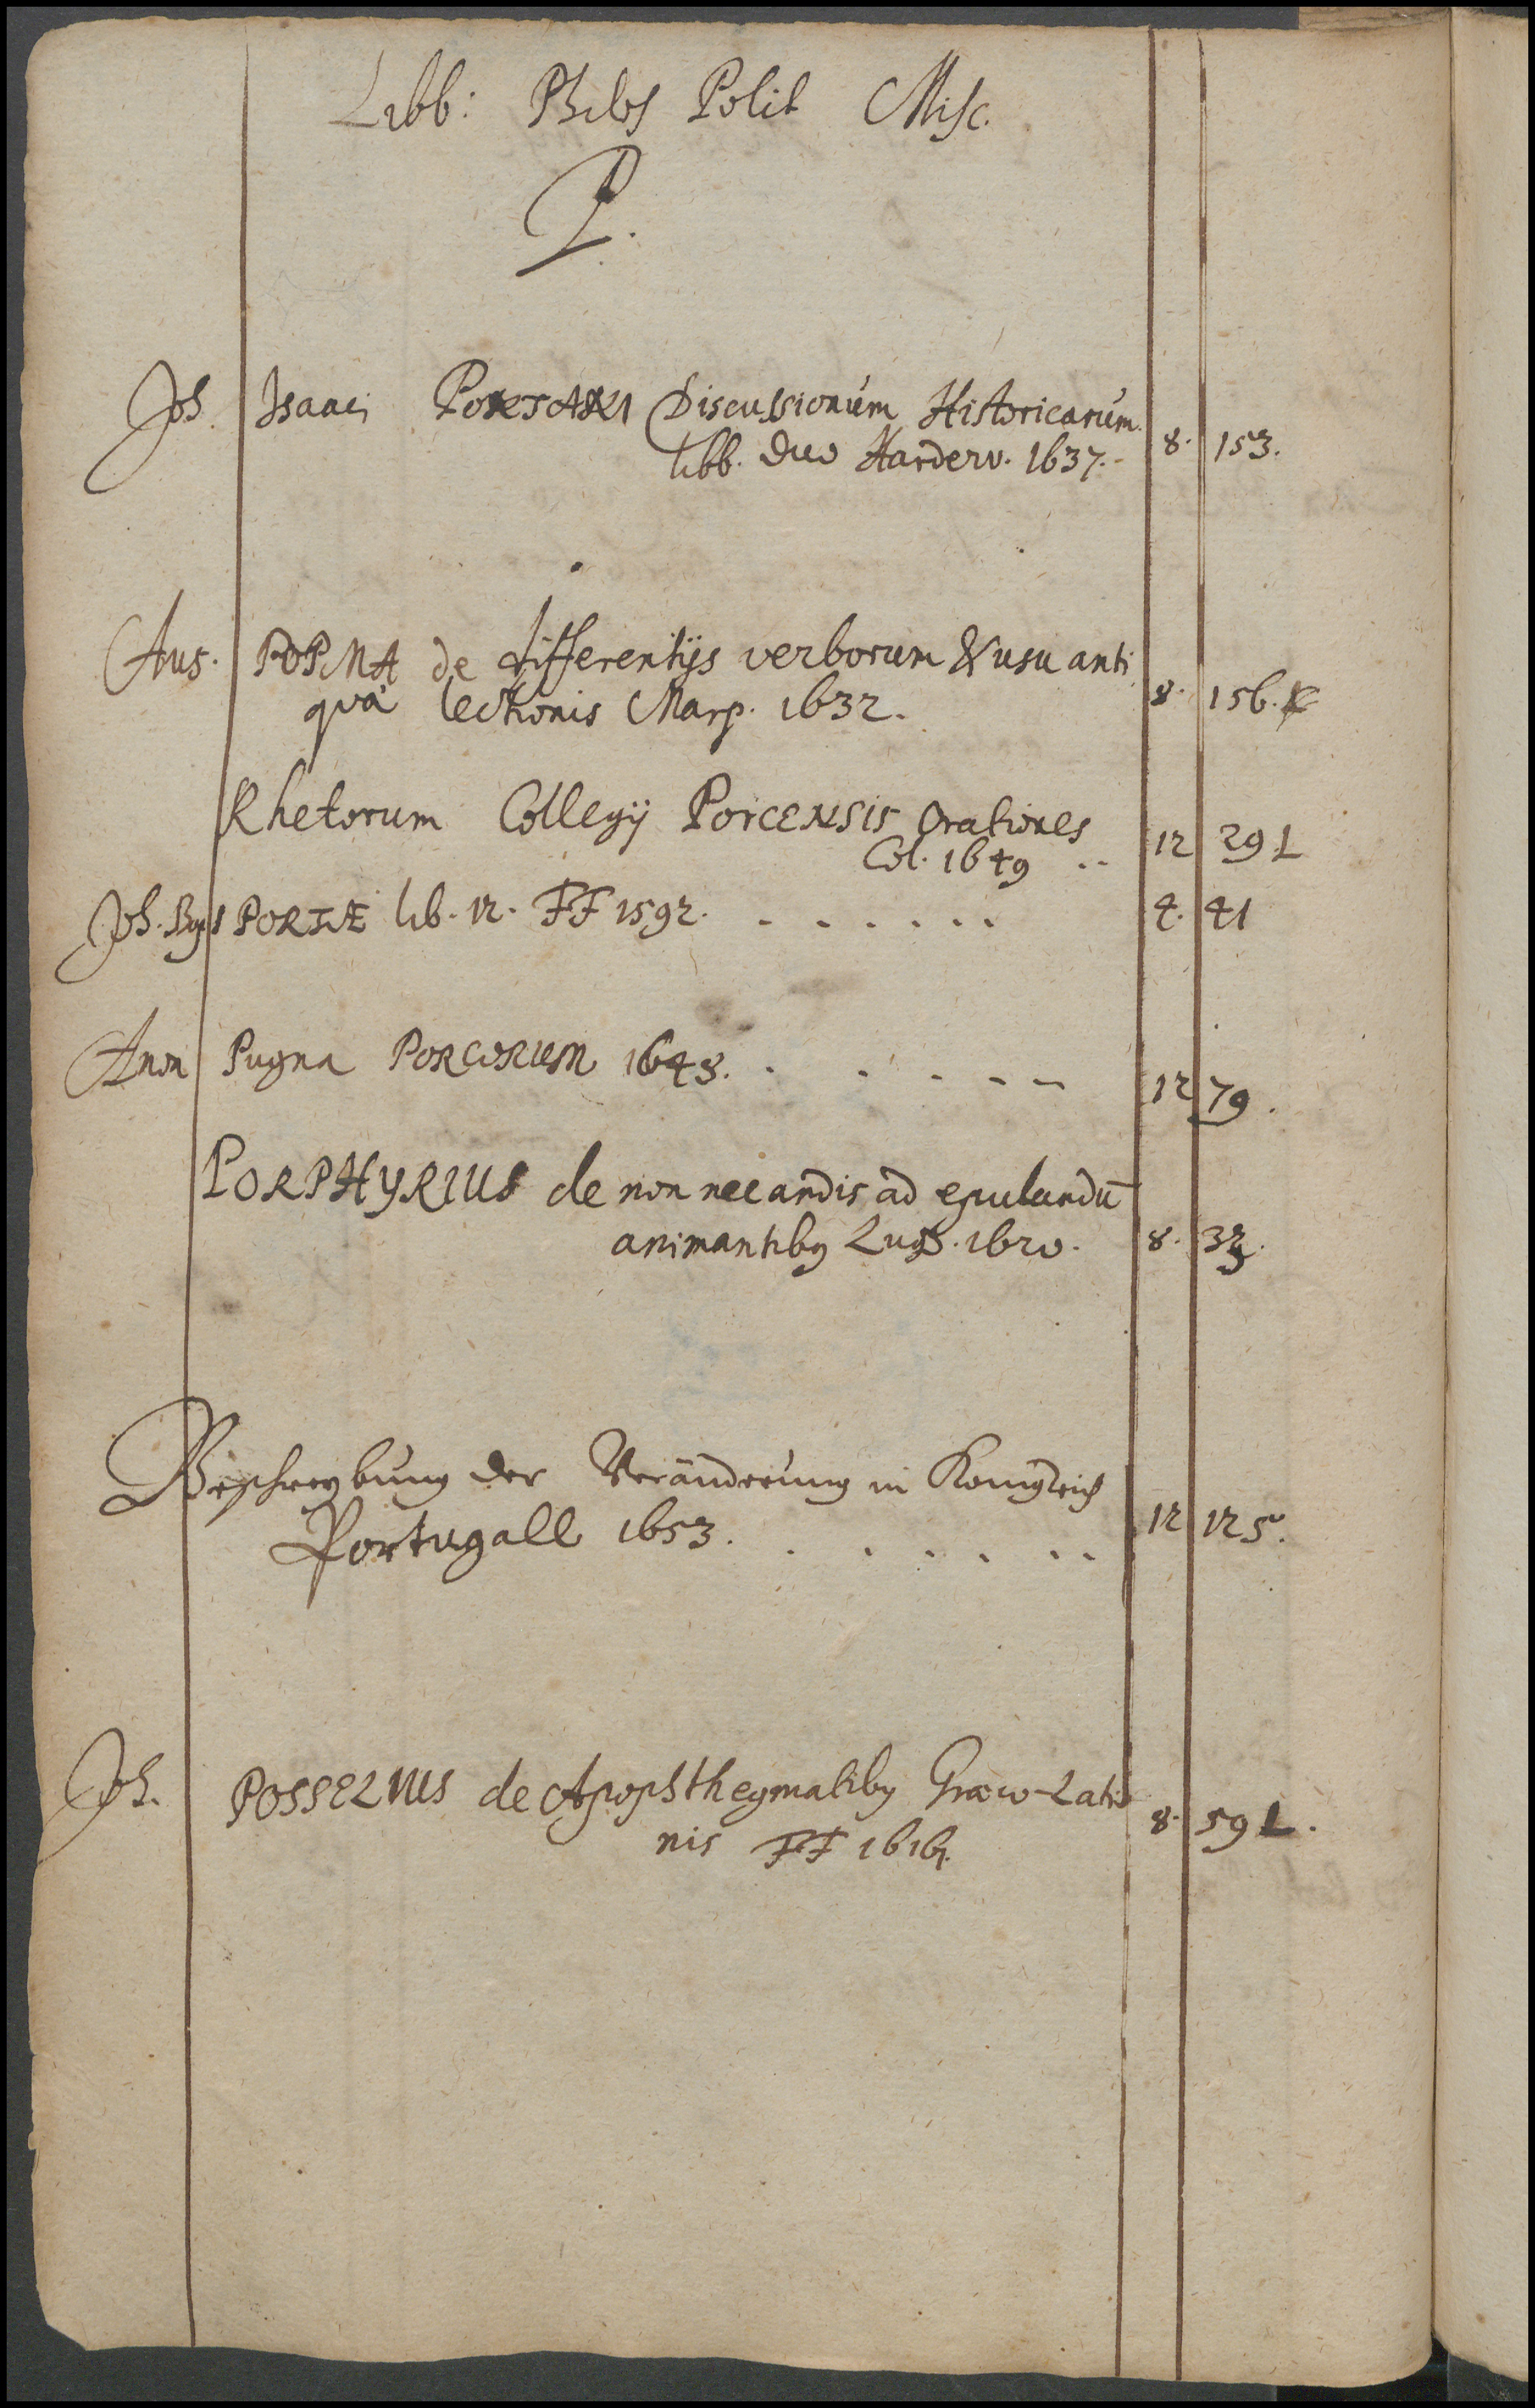 Libb: Philos Polit Misc.
P.
Joh. Isaaci PONTANI Discussionum Historicarum
libb. duo Harderv. 1637. 8. 153.
Aus. POPMA de differentijs verborum & usu anti
quæ lectionis Marp. 1632. 8. 156.
Rhetorum Collegij PORCENSIS Orationes
Col. 1649 .. 12 29 L
Joh. Bapt PORTÆ lib. 12. FF 1592. . . . . . . 4. 41
Anon Pugna PORCORUM 1648. . . . . . 12 79.
PORPHYRIUS de non necandis ad epulandū
animantibq Lugd. 1620. 8. 33.
Beschreybung der Veränderung in Königreich
Portugall 1653. . . . . . . 12 125.
Joh. POSSELIUS de Apophthegmatibq Græco-Lati
nis FF 1616. 8. 59 L.